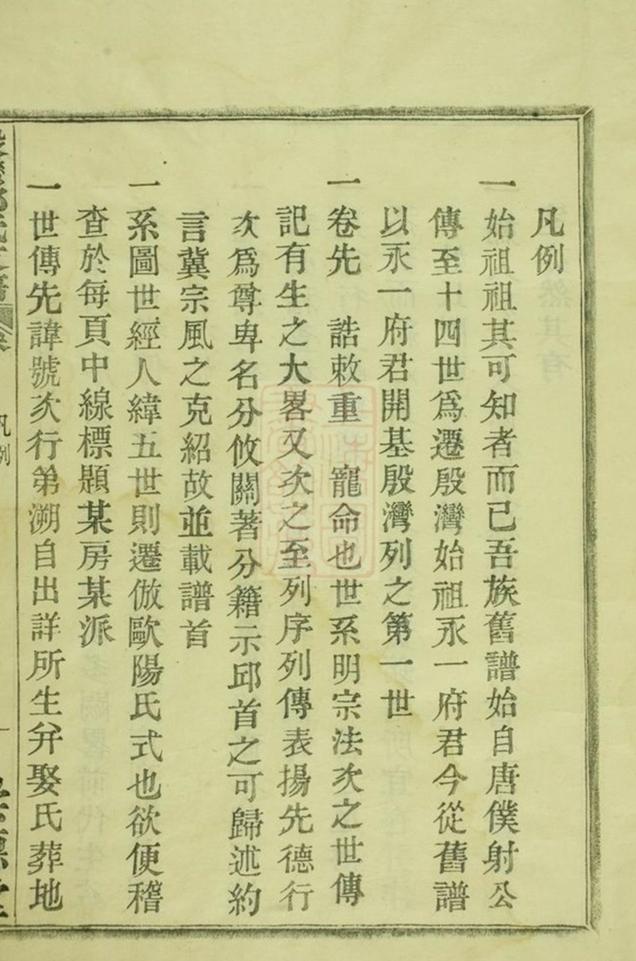 凡例
一始祖祖其可知者而已吾族舊譜始自唐僕射公
傳至十四世爲遷殷灣始祖永一府君今從舊譜
以永一府君開基殷灣列之第一世
一卷先　誥敕重　寵命也世系明宗法次之世傳
記有生之大畧又次之至列序列傳表揚先德行
次爲尊卑名分攸關著分籍示邱首之可歸述約
言冀宗風之克紹故並載譜首
一系圖世經人緯五世則遷倣歐陽氏式也欲便稽
查於每頁中線標題某房某派
一世傳先諱號次行第溯自出詳所生并娶氏葬地
凡例